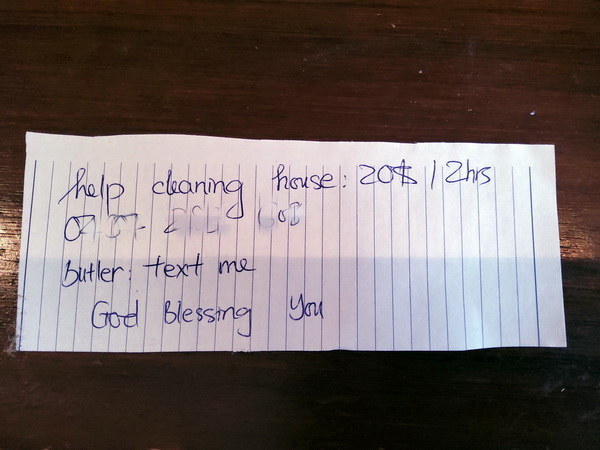 help cleaning house: 20$ / 2hrs
Butler: text me
God Blessing You